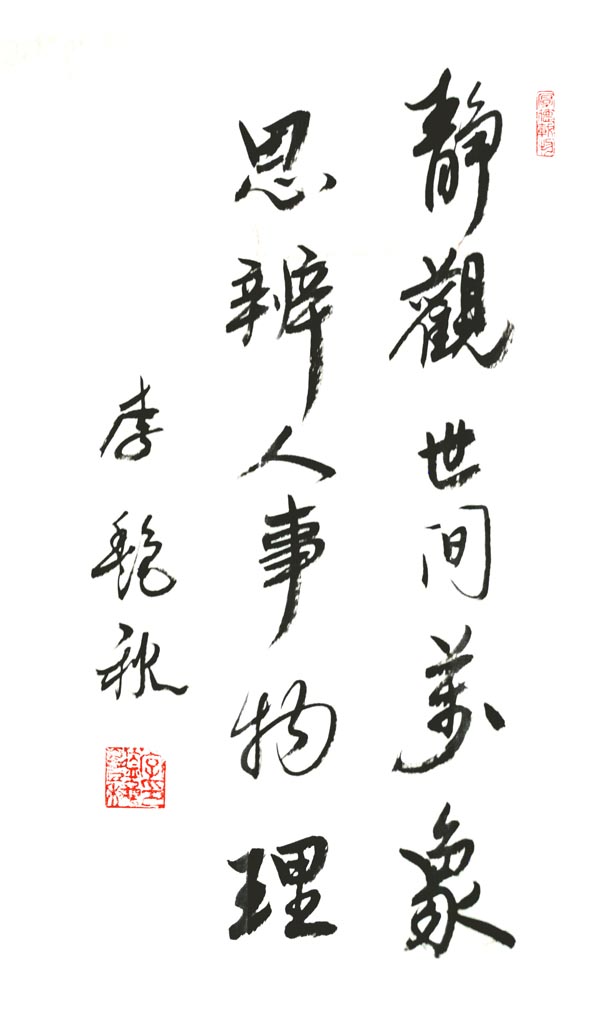 靜觀世间萬象
思辨人事物理
李艷秋